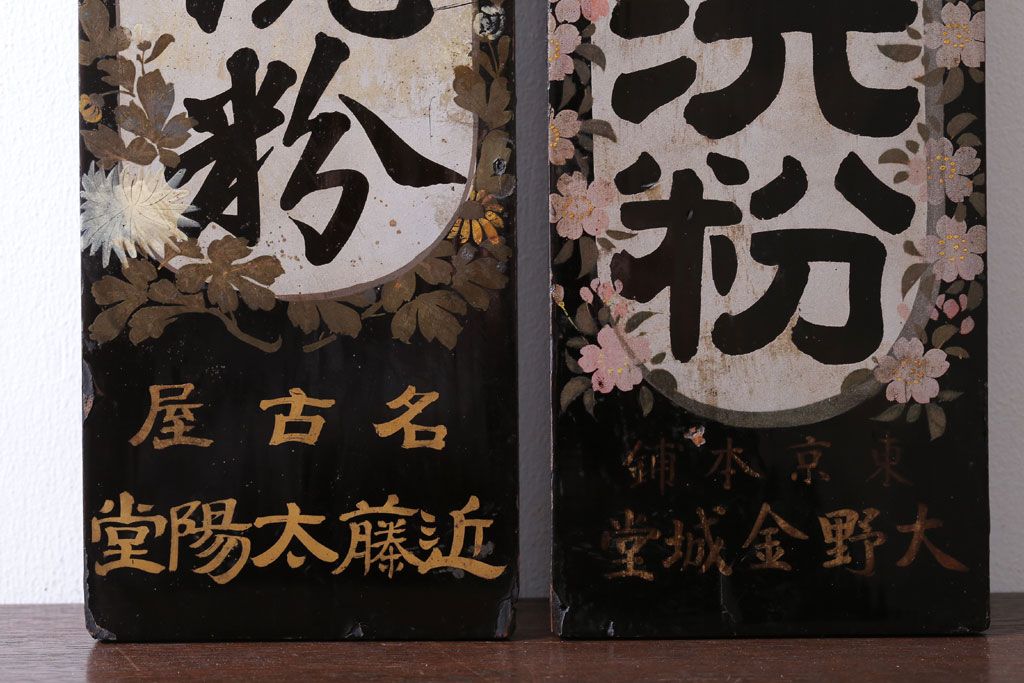 洗粉
名古屋
近藤太陽堂
洗粉
東京本舗
大野金城堂